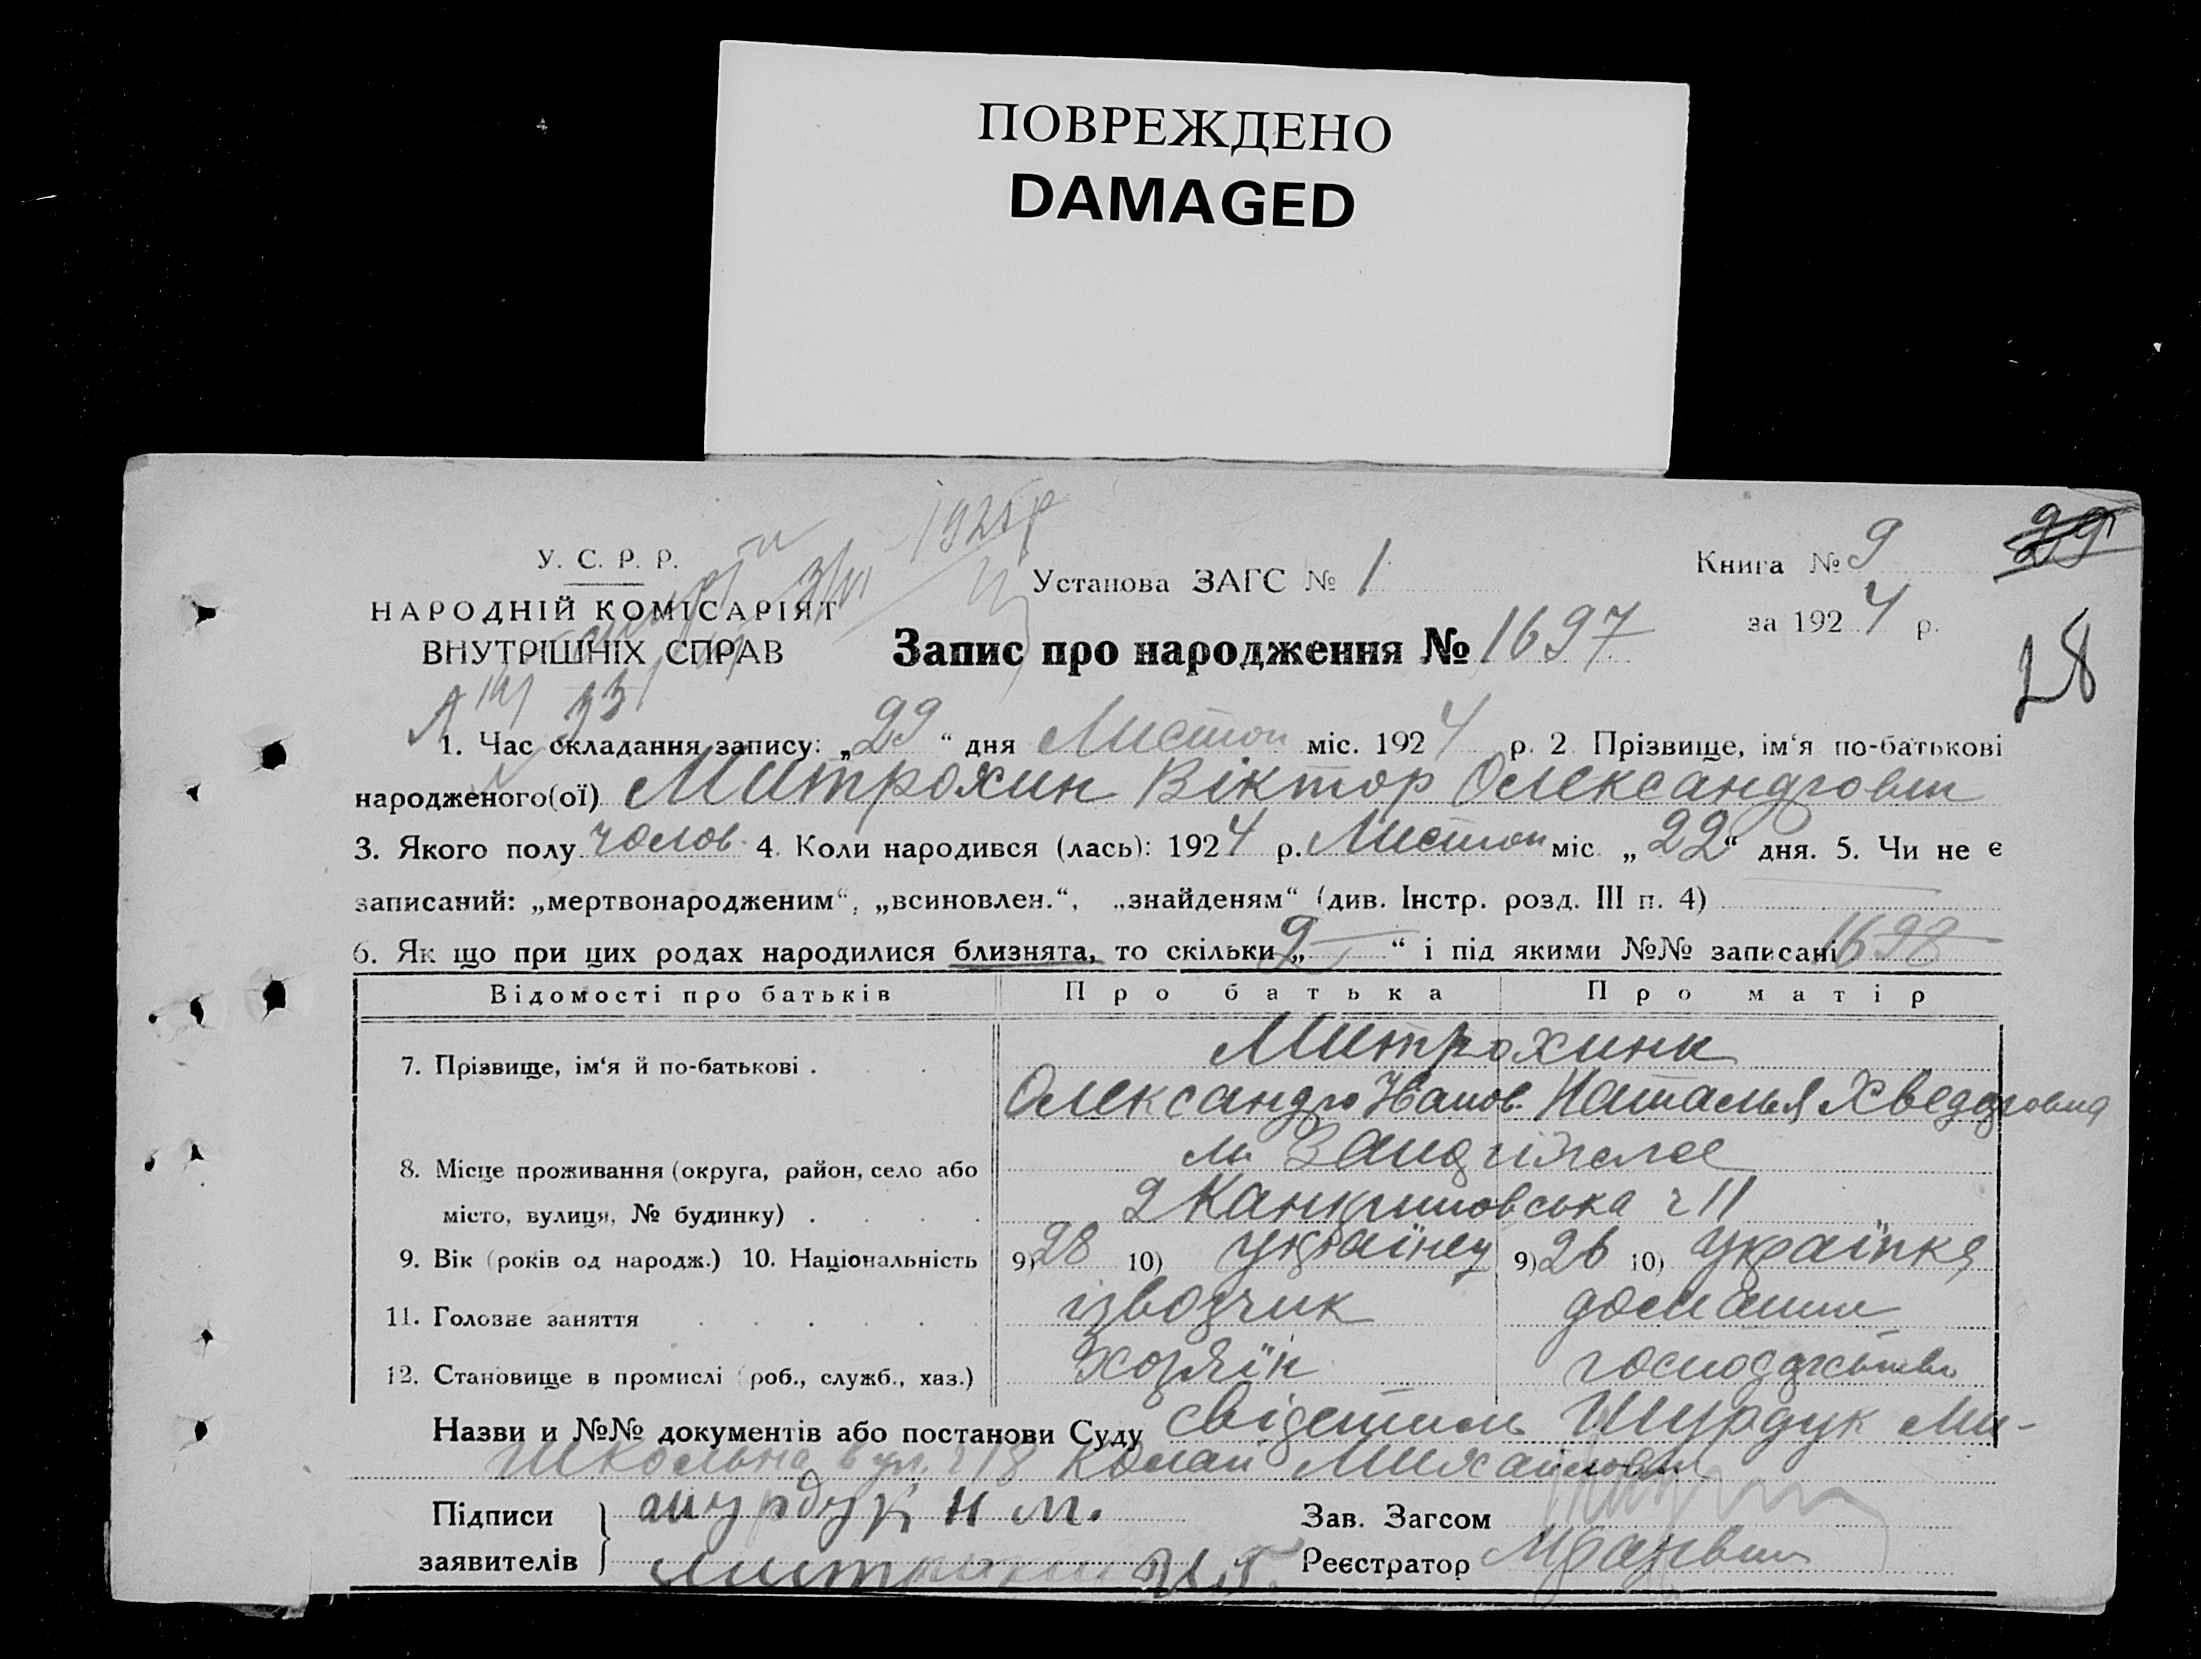 ПОВРЕЖДЕНО
DAMAGED
1925р
У. С. Р. Р.
Установа ЗАГС № 1
Книга № 9
29
НАРОДНІЙ КОМІСАРІЯТ
ВНУТРІШНІХ СПРАВ
за 1924 р.
Запис про народження № 1697
28
1. Час складання запису: „29“ дня Листоп міс. 1924 р. 2 Прізвище, ім‘я по-батькові
народженого(ої) Митрохин Віктор Олександрович
3. Якого полу чолов. 4. Коли народився (лась): 1924 р. Листоп міс. „22“ дня. 5. Чи не є
записаний: „мертвонародженим“, „всиновлен.“, „знайденям“ (див. Інстр. розд. III п. 4)
6. Як що при цих родах народилися близнята, то скільки „2“ і під якими №№ записані 1698
Відомості про батьків Про батька Про матір
7. Прізвище, ім‘я й по-батькові . Митрохини
Олександр Іванов. Наталья Хведоровна
8. Місце проживання (округа, район, село або м
місто, вулиця, № будинку) . 2 ч 11
9. Вік (років од народж.) 10. Національність 9) 28 10) українец 9) 26 10) українка
11. Головне заняття ізвозчик домашнє
12. Становище в промислі (роб., служб., хаз.) хозяїн господарство
Назви и №№ документів або постанови Суду свідетель Шурдук Ми-
Школьна вул. ч 18 Михайлович
Підписи шурдук н м. Зав. Загсом
заявителів Реєстратор